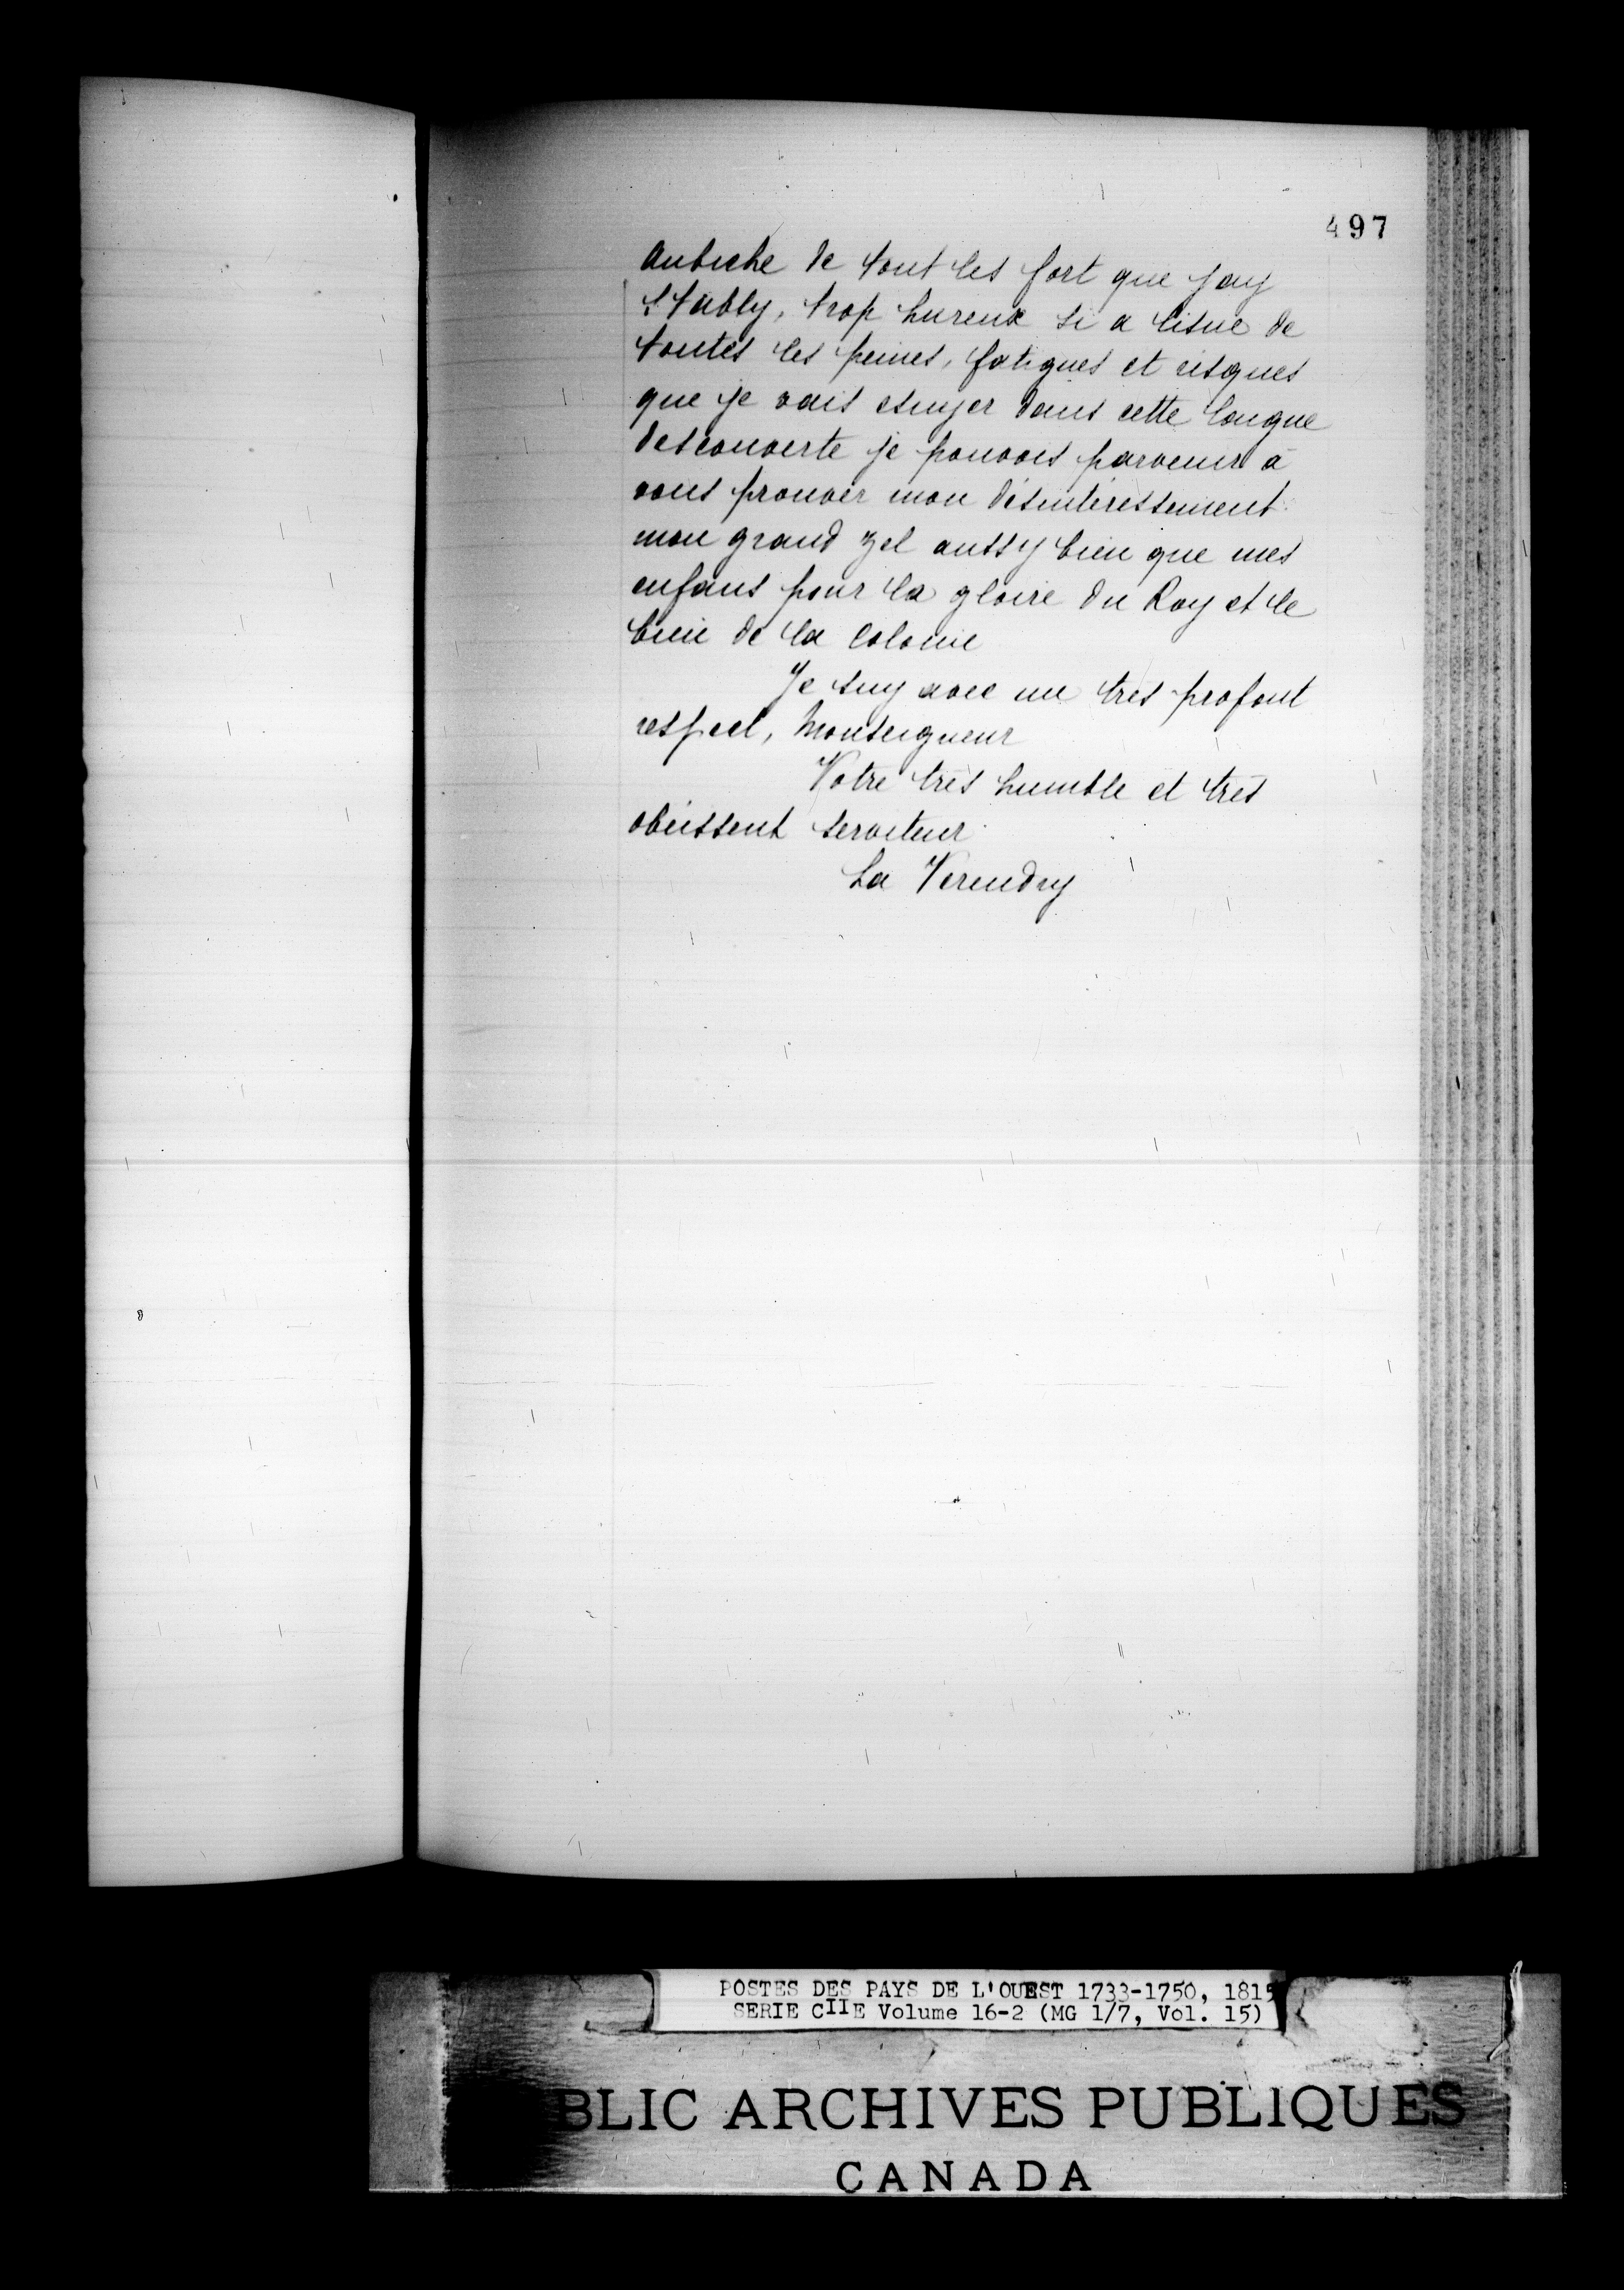 497
aubiche de tout les fort que jay
Etably, trop hureux si a lisue de
toutes les peines, fatigues et risques
que je vais esuyer dans cette longue
descouverte je pouvois parvenir à
vous prouver mon désintéressement
mon grand zel aussy bien que mes
enfans pour la gloire du Roy et le
bien de la Colonie
Je suy avec un tres profont
respect, Monseigneur
Votre très humble et très
obéissent serviteur
La Verendry
POSTES DES PAYS DE L'OUEST 1733-1750, 1815
SERIE CIIE Volume 16-2 (MG 1/7, Vol. 15)
BLIC ARCHIVES PUBLIQUES
CANADA